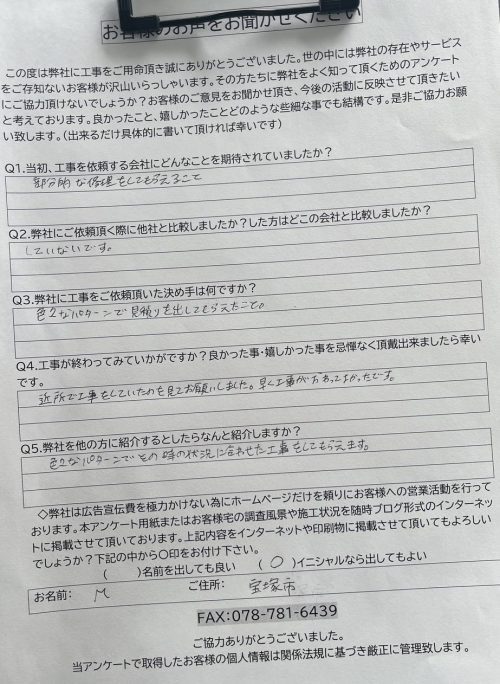 お客様のお声をお聞かせください
この度は弊社に工事をご用命頂き誠にありがとうございました。世の中には弊社の存在やサービス
をご存知ないお客様が沢山いらっしゃいます。その方たちに弊社をよく知って頂くためのアンケート
にご協力頂けないでしょうか？お客様のご意見をお聞かせ頂き、今後の活動に反映させて頂きたい
と考えております。良かったこと、嬉しかったことどのような些細な事でも結構です。是非ご協力お願
い致します。（出来るだけ具体的に書いて頂ければ幸いです）
Q1.当初、工事を依頼する会社にどんなことを期待されていましたか？
部分的な修理をしてもらえること
Q2.弊社にご依頼頂く際に他社と比較しましたか？した方はどこの会社と比較しましたか？
していないです。
Q3.弊社に工事をご依頼頂いた決め手は何ですか？
色々なパターンで見積りを出してもらえたこと。
Q4.工事が終わってみていかがですか？良かった事・嬉しかった事を忌憚なく頂戴出来ましたら幸い
です。
近所で工事をしていたのを見てお願いしました。早く工事が終わってよかったです。
Q5.弊社を他の方に紹介するとしたらなんと紹介しますか？
色々なパターンでその時の状況に合わせた工事をしてもらえます。
◇弊社は広告宣伝費を極力かけない為にホームページだけを頼りにお客様への営業活動を行って
おります。本アンケート用紙またはお客様宅の調査風景や施工状況を随時ブログ形式のインターネッ
トに掲載させて頂いております。上記内容をインターネットや印刷物に掲載させて頂いてもよろしい
でしょうか？下記の中から〇印をお付け下さい。
（　　）名前を出しても良い　（ 〇 ）イニシャルなら出してもよい
お名前：　M　ご住所：　宝塚市
FAX：078-781-6439
ご協力ありがとうございました。
当アンケートで取得したお客様の個人情報は関係法規に基づき厳正に管理致します。